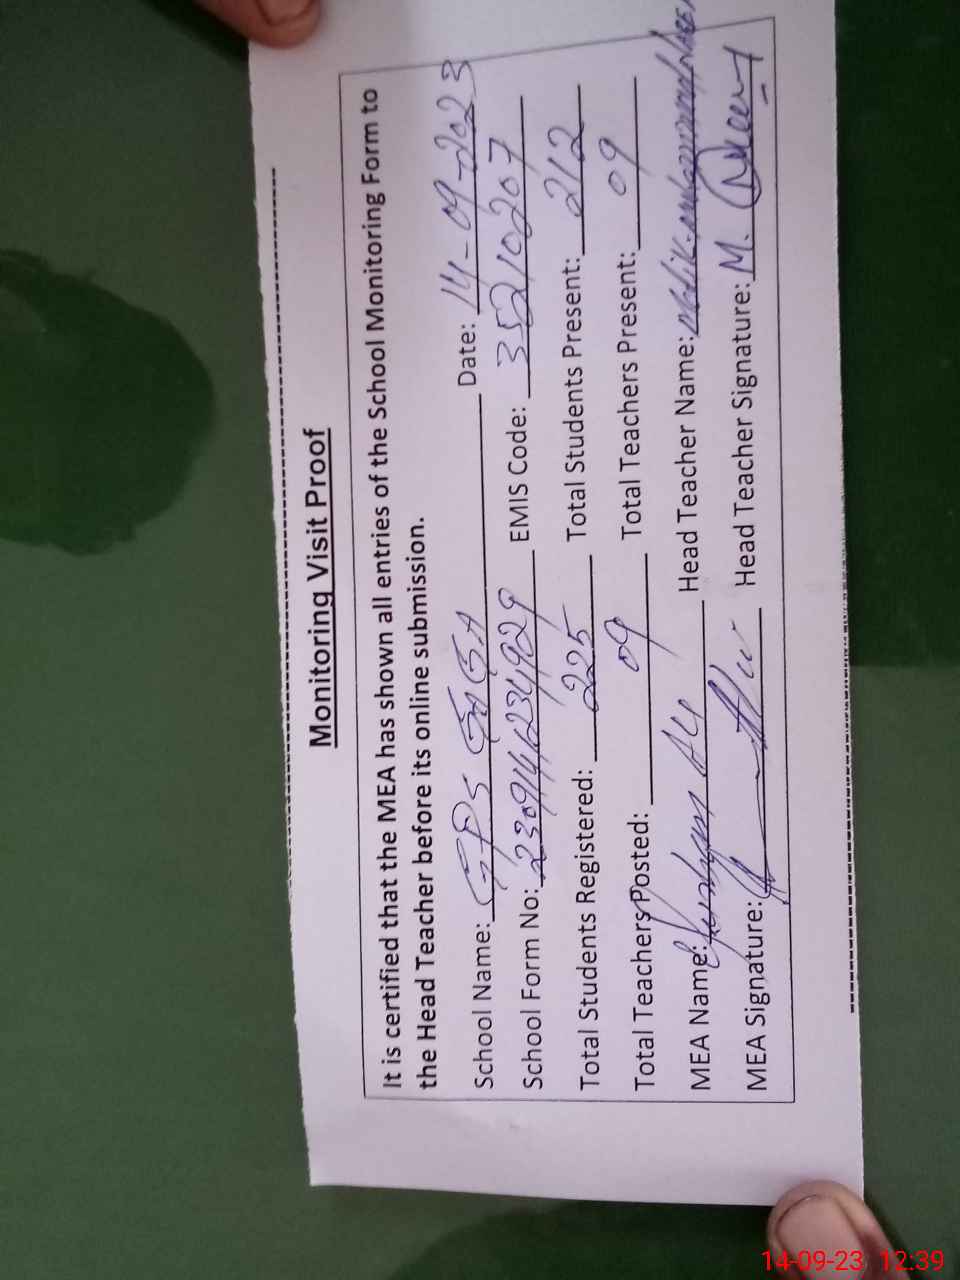 Monitoring Visit Proof
It is certified that the MEA has shown all entries of the School Monitoring Form to
the Head Teacher before its online submission.
School Name: GPS GAGA Date: 14-09-2023
School Form No: 2309141234929 EMIS Code: 35210207
Total Students Registered: 225 Total Students Present: 212
Total Teachers Posted: 09 Total Teachers Present: 09
MEA Name: Ali Head Teacher Name: Malik Muhammad
MEA Signature: Head Teacher Signature: M.
14-09-23 12:39